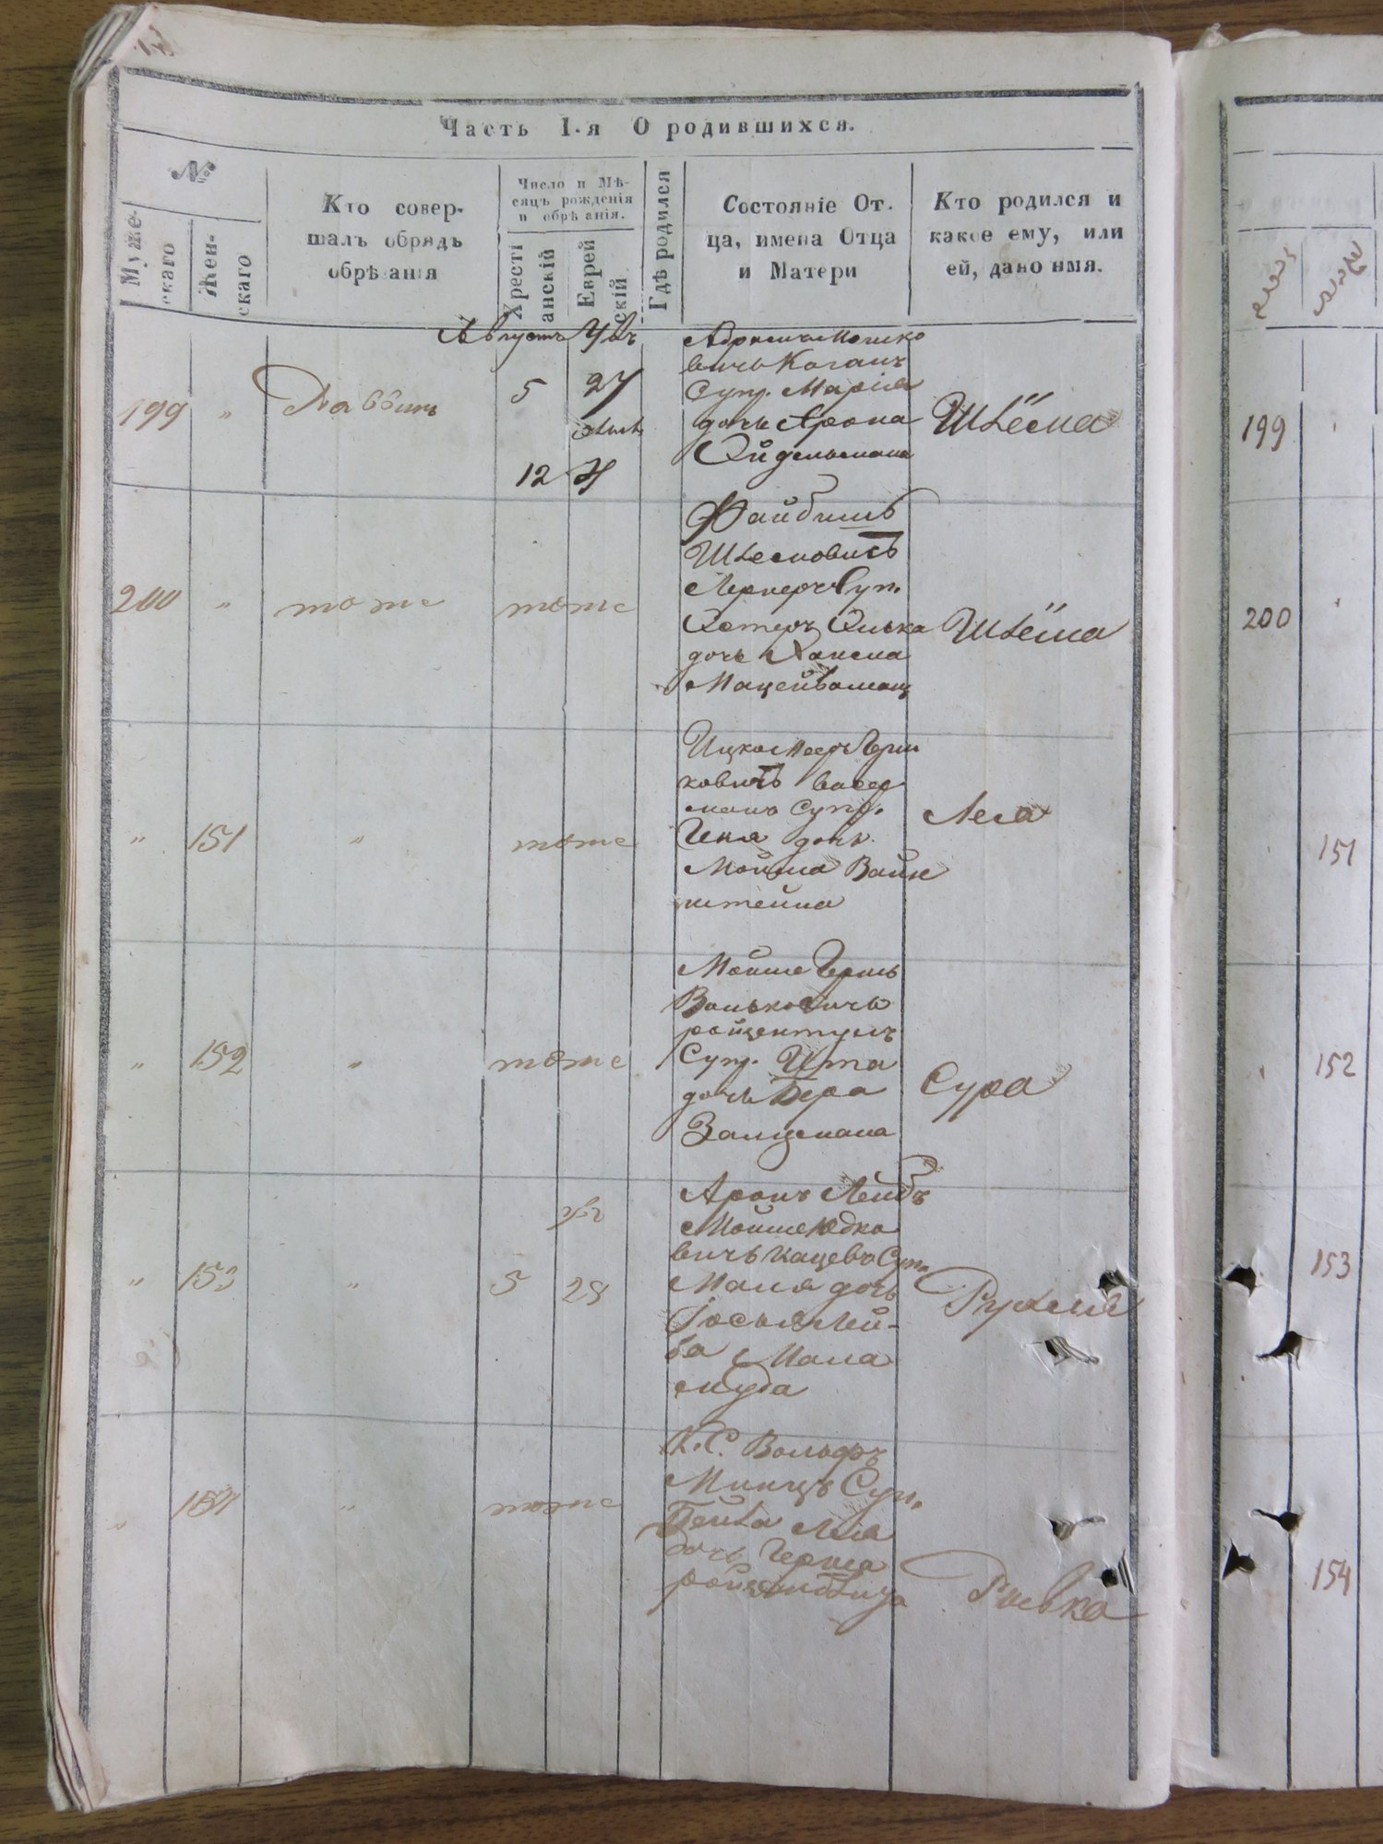 Часть I-я О родившихся.
№
Муже-
скаго
Жен-
скаго
Кто совер-
шалъ обрядъ
обрѣзанія
Число и Мѣ-
сяцъ рожденія
и обрѣзанія.
Хресті
анскій
Еврей
скій
Гдѣ родился
Состояніе От.
ца, имена Отца
и Матери
Кто родился и
какое ему, или
ей, дано имя.
Августъ
199 " Раввинъ 5 27
12
Мошко
вичъ Коганъ
Суп. Марія
дочь Арона
Эйдельмана
Шлёма
199
200 " тоже тоже
Файбишъ
Шлемовичъ
Лернеръ Суп.
Эстеръ Элька
дочь
Шлёма
200
" 151 " тоже
Ицко Мееръ Герш
ковичъ Васер
манъ Суп.
дочь
Мойша Вайн
штейна
Лея
151
" 152 " тоже
Мойше Герш
Волькович
ройзентулъ
Суп. Ита
дочь Бера
Залцмана
Сура
152
" 153 " 5 28
Аронъ Лейбъ
Мойше Юдко
вичъ Кацевъ Суп.
Маля дочь
Іосья Лей-
ба Мала
муда
Рухля
153
" 154 " тоже
К. С. Вольфъ
Минцъ Суп.
Бейла Лея
дочь Герша
Ривка
154